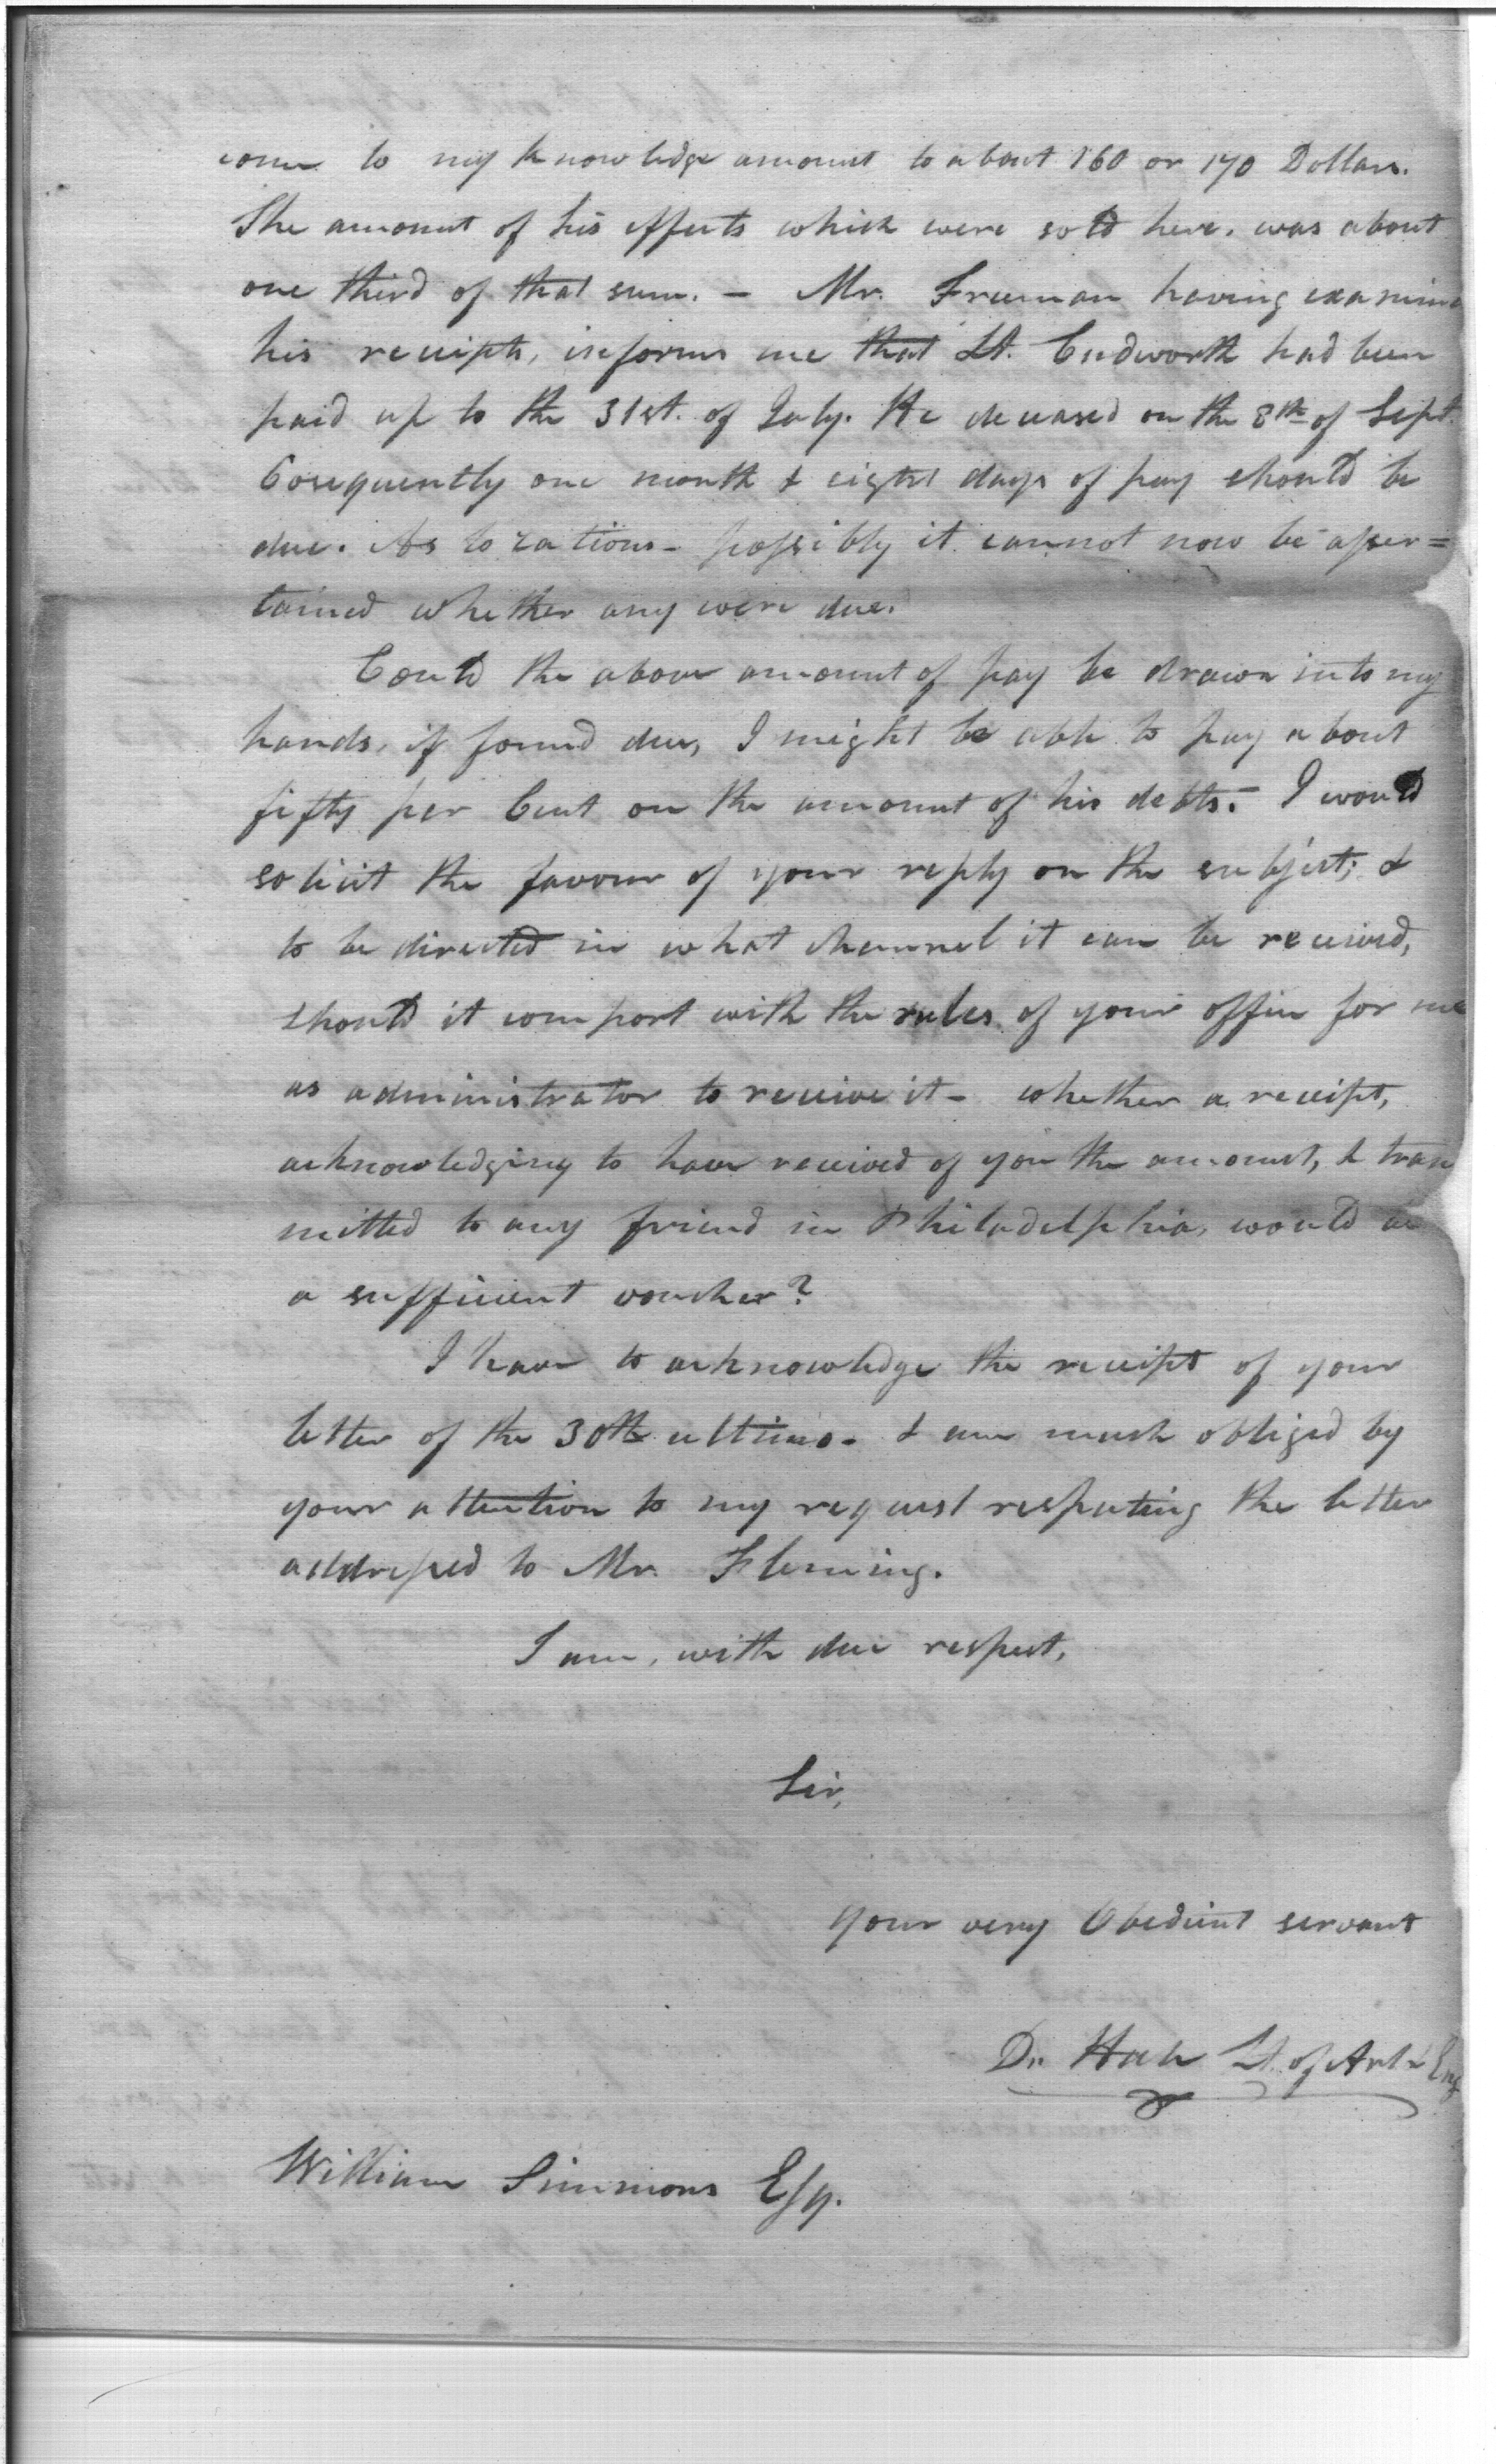 come to my knowledge amount to about 160 or 170 Dollars.
The amount of his effects which were sold here, was about
one third of that sum. - Mr. Freeman having examine
his receipts, informs me that Lt. Cudworth had been
paid up to the 31st. of July. He deceased on the 8th of Sept.
Cosequently one month & eight days of pay should be
due. As to rations - possibly it cannot now be asser=
tained whether any were due.
Could the above amount of pay be drawn into my
hands, if found due, I might be able to pay about
fifty per Cent on the amount of his debts. - I would
solicit the favour of your reply on the subject; &
to be directed in what channel it can be received,
should it comport with the rules of your office for me
as administrator to receive it - whether a receipt,
acknowledging to have received of you the amount, & tran
mitted to any friend in Philadelphia, would
a sufficient voucher?
I have to acknowledge the receipt of your
letter of the 30th ultimo - & am much obliged by
your attention to my request respecting the letter
addressed to Mr. Fleming.
I am, with due respect,
Sir,
your very Obedient servant
D. Hale Lt. of Art & Eng
William Simmons Esq.